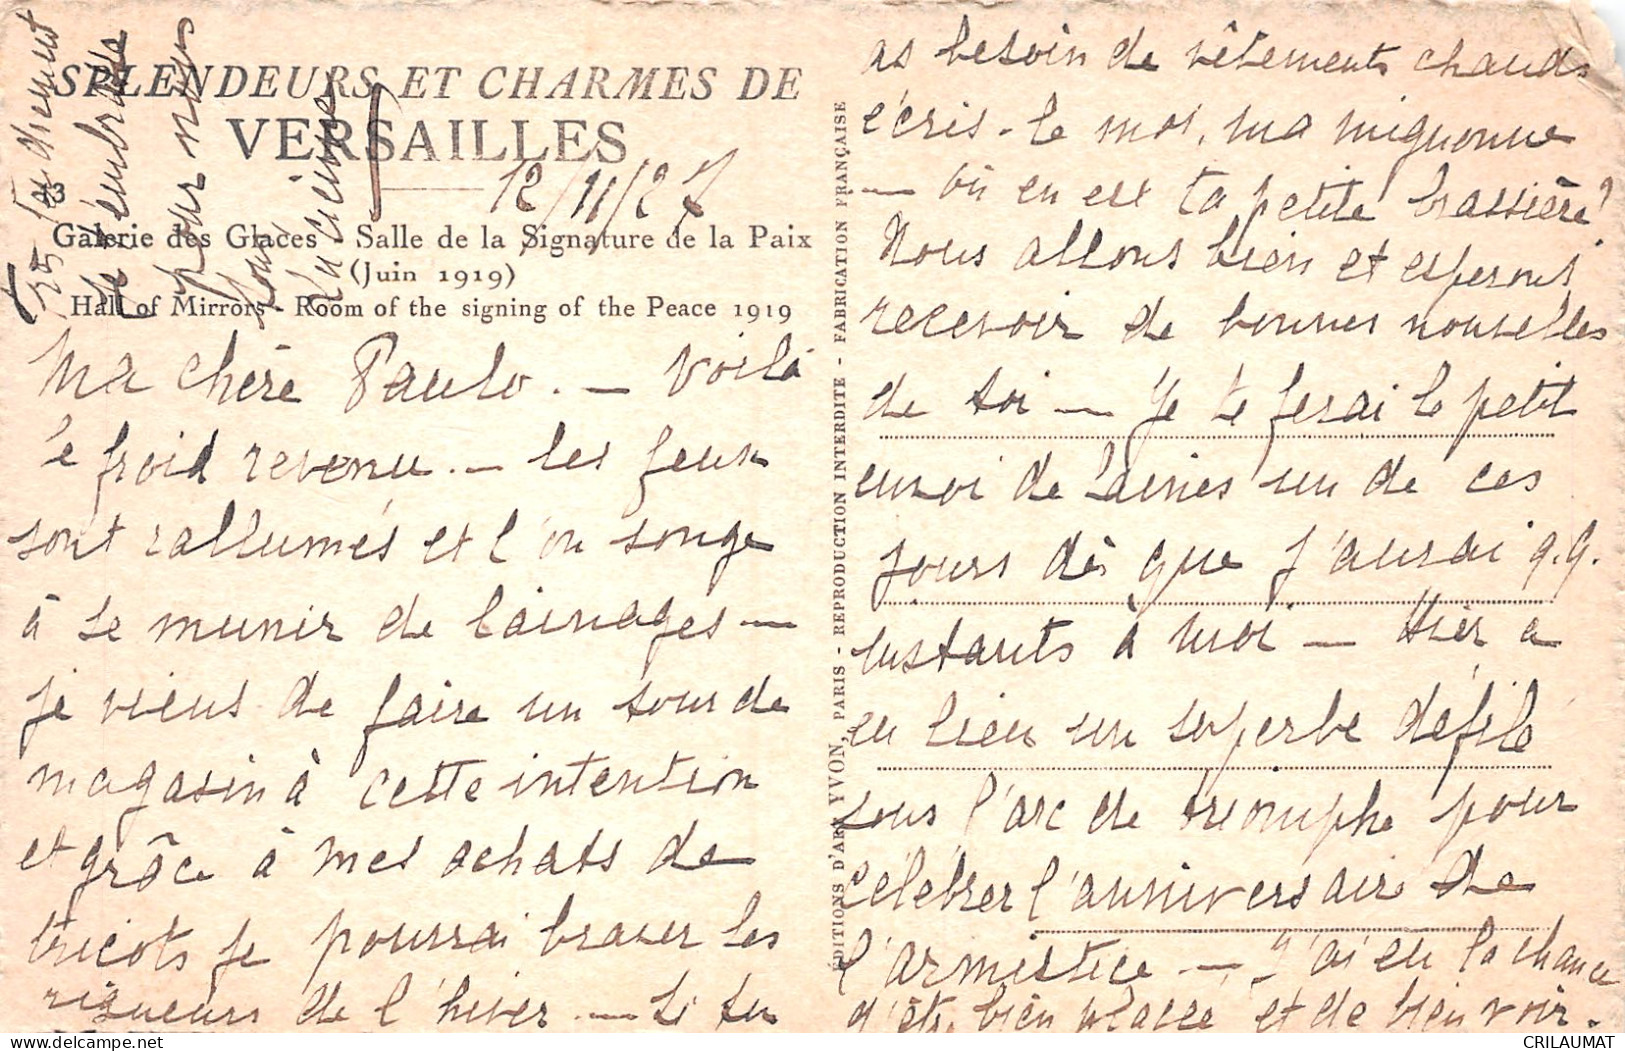 SPLENDEURS ET CHARMES DE
VERSAILLES
12/11/27
Galerie des Glaces - Salle de la Signature de la Paix
(Juin 1919)
Hall of Mirrors - Room of the signing of the Peace 1919
Ma chère Paulo. — Voilà
le froid revenu. — les feux
sont rallumés et l'on songe
à se munir de lainages —
je viens de faire un tour de
magasin à cette intention
et grâce à mes achats de
tricots je pourrai braver les
rigueurs de l'hiver — Si tu
as besoin de vêtements chauds
écris-le moi, ma mignonne
— où en est ta petite brassière?
Nous allons bien et esperons
recevoir de bonnes nouvelles
de toi — Je te ferai le petit
envoi de laines un de ces
jours dès que j'aurai q.q.
instants à moi — Hier a
eu lieu un superbe défilé
sous l'arc de triomphe pour
célébrer l'anniversaire de
l'armistice — J'ai eu la chance
d'être bien placée et de bien voir.
Tendrement
je t'embrasse
pour nous
tous
Lucienne
ÉDITIONS D'ART YVON, PARIS - REPRODUCTION INTERDITE - FABRICATION FRANÇAISE
CRILAUMAT